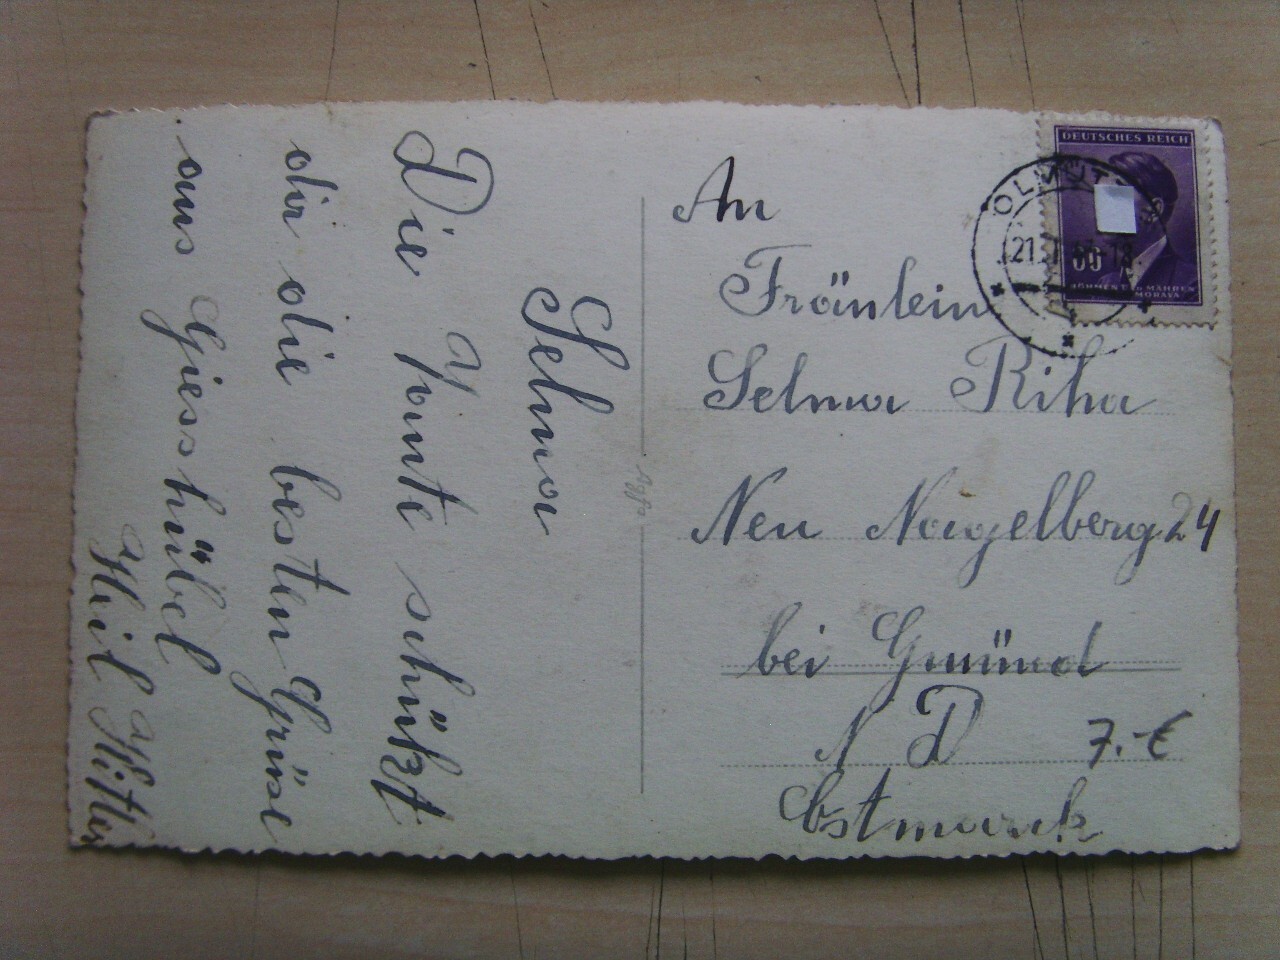 Selma
Die Hante schükt
dir die besten Grüse
aus Giesshübel
Heil Hitler
An
Fräulein
Selma Riha
Neu Nagelberg 24
bei Gmünd
N D
Ostmark
7.-€
DEUTSCHES REICH
OLMÜTZ
21.
60
BÖHMEN UND MÄHREN
MORAVA